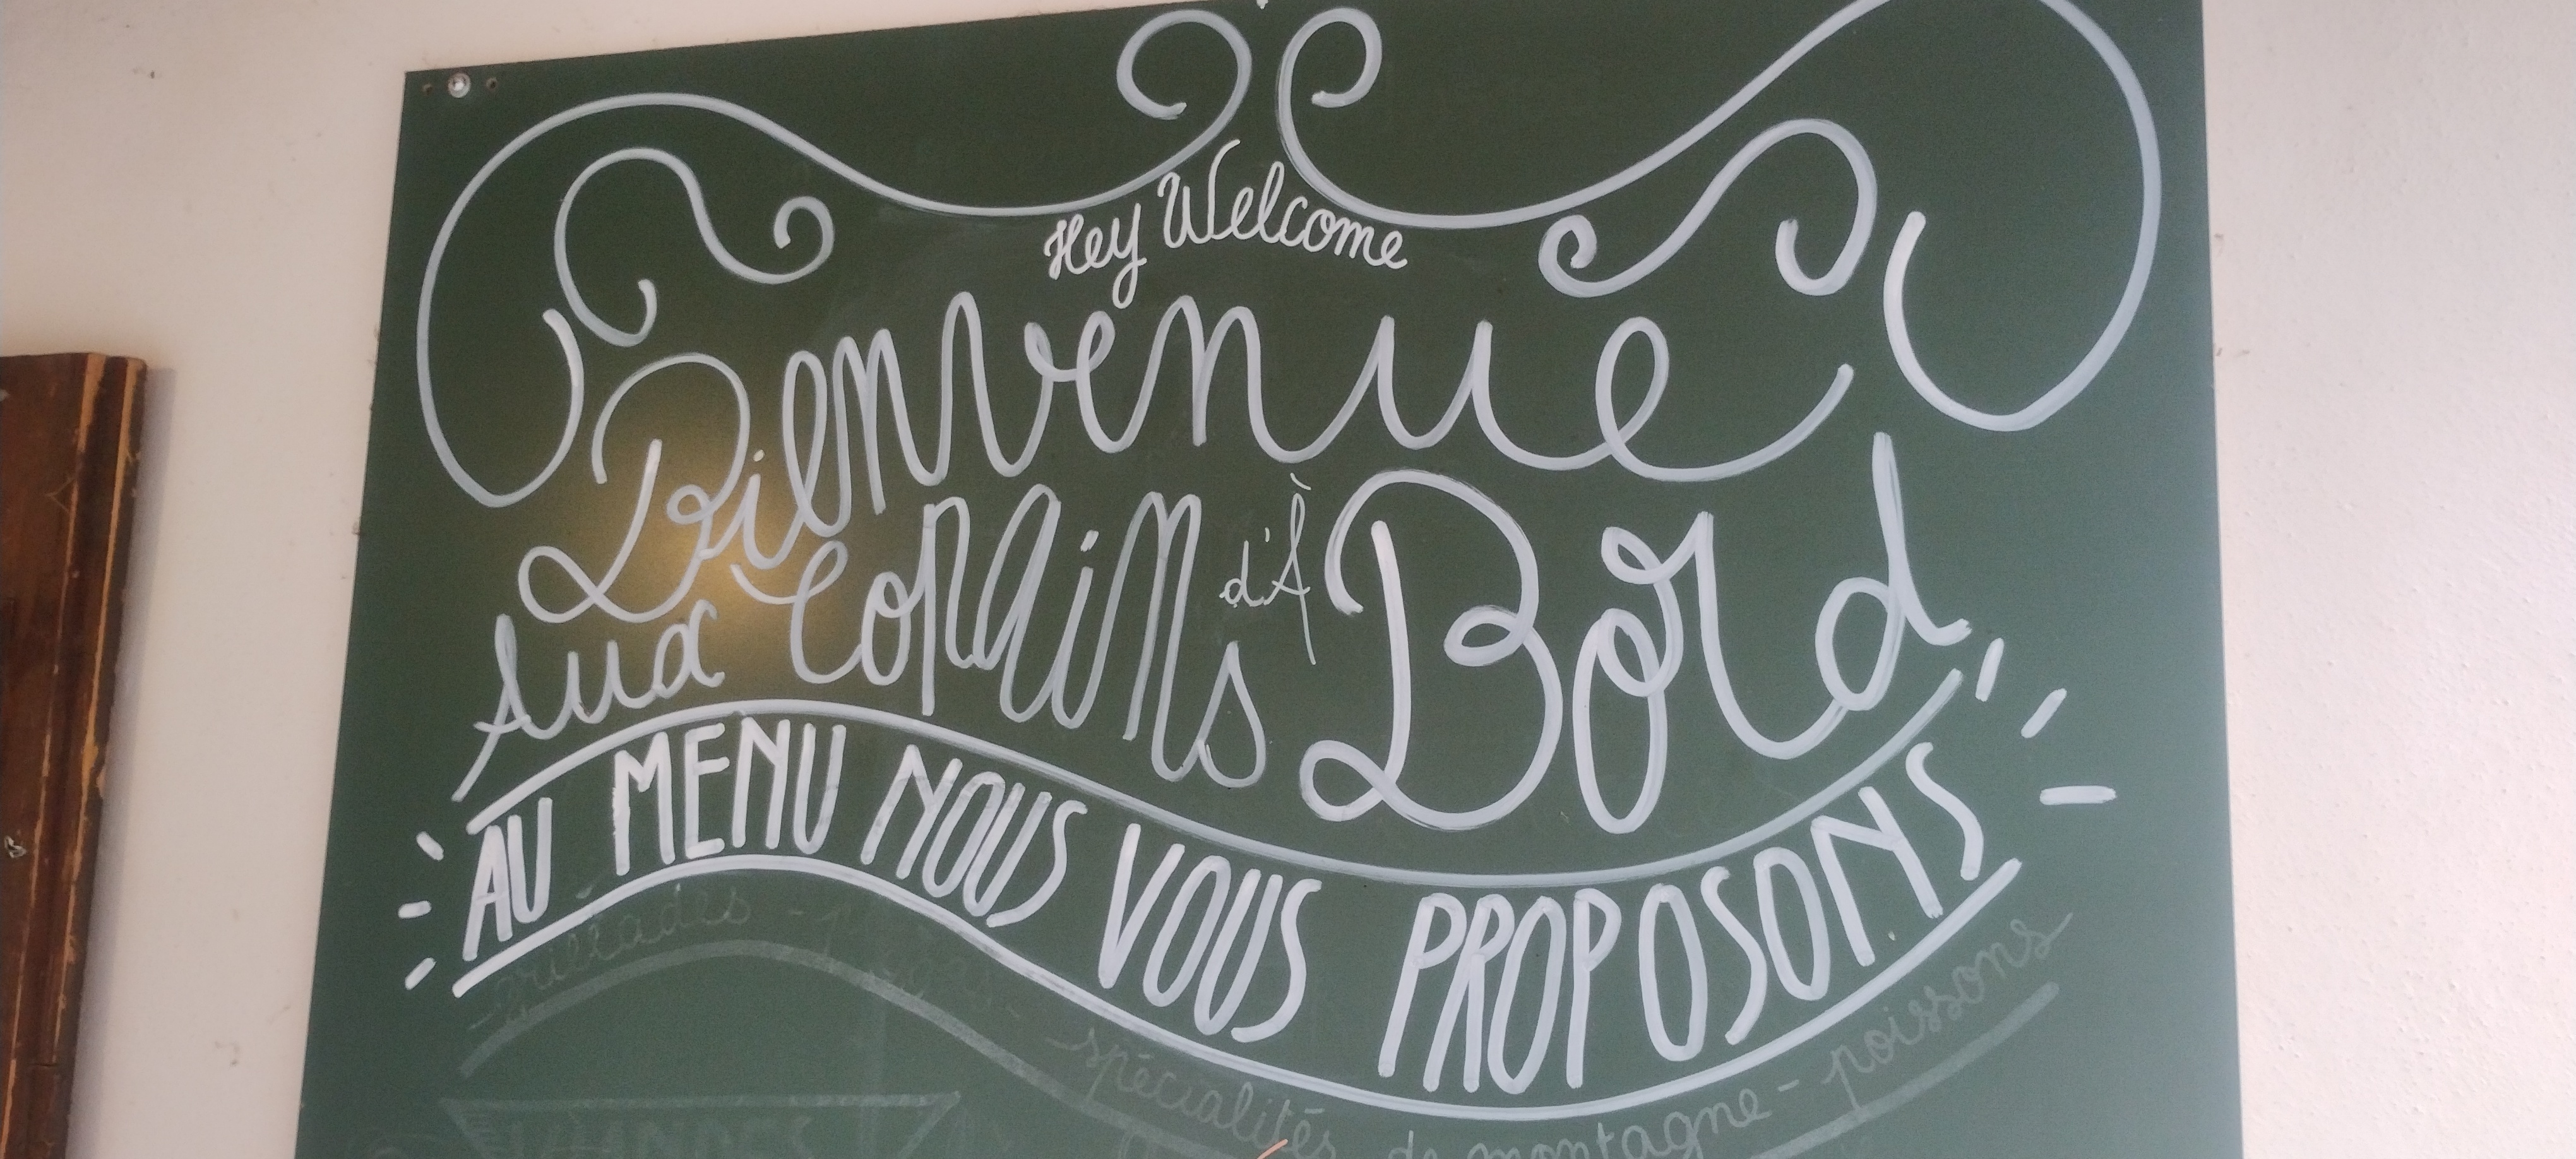 Hey Welcome
Bienvenue
Aux Copains d'À Bord
AU MENU NOUS VOUS PROPOSONS
- grillades - - spécialités de montagne - poissons
VIANDES